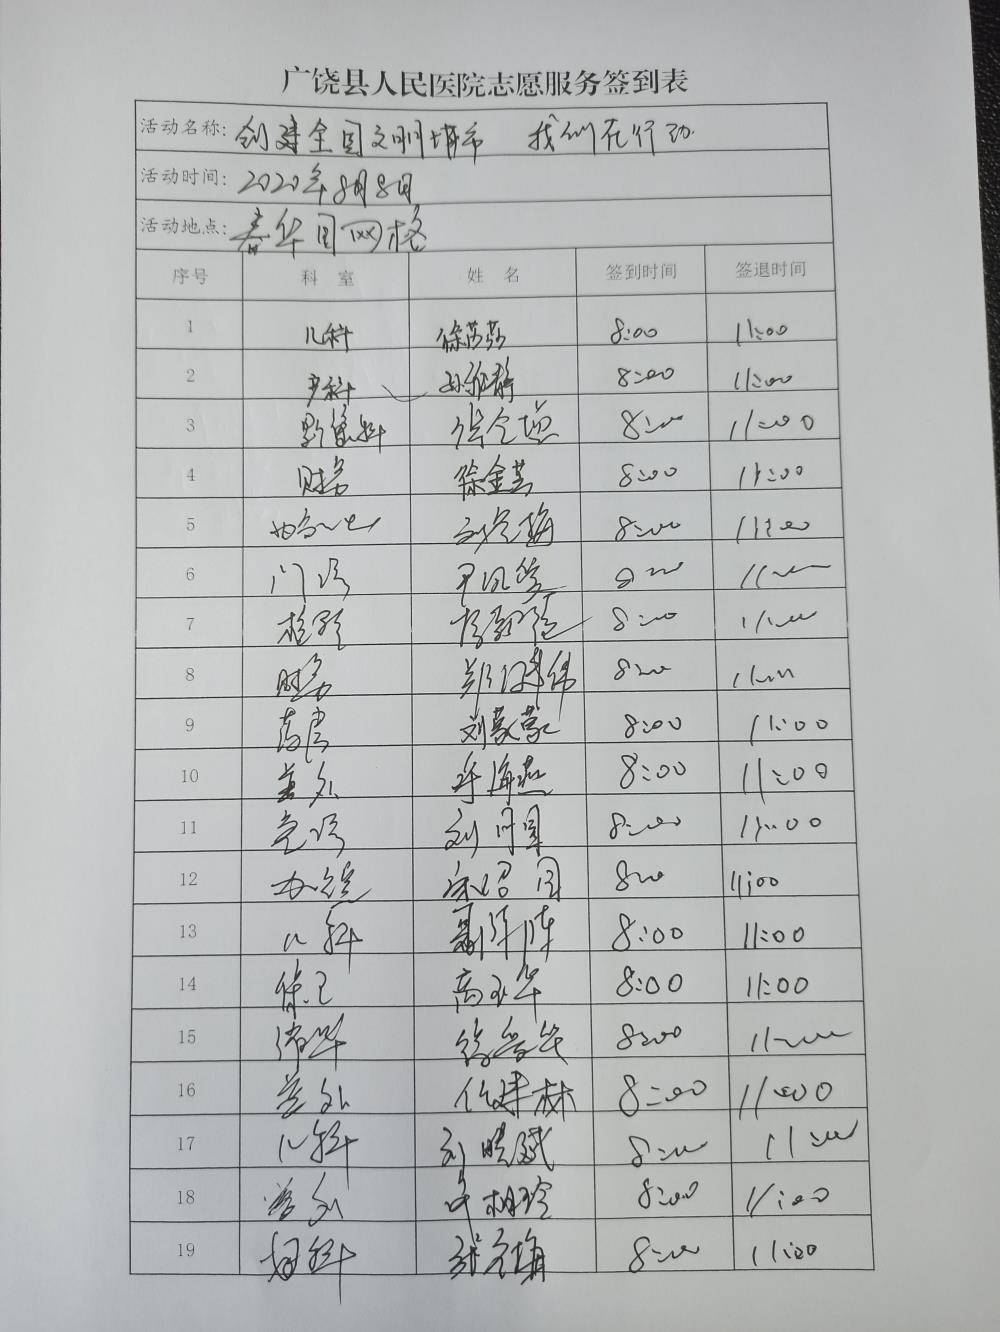 广饶县人民医院志愿服务签到表
活动名称: 创建全国文明城市 我们在行动
活动时间: 2020年8月8日
活动地点: 春华园网格
序号 科室 姓名 签到时间 签退时间
1 儿科 徐莎莎 8:00 11:00
2 产科 8:00 11:00
3 影像科 8:00 11:00
4 财务 徐金芸 8:00 11:00
5 8:00 11:00
6 门诊 8:00 11:00
7 检验 8:00 11:00
8 财务 郑 伟 8:00 11:00
9 刘蒙蒙 8:00 11:00
10 普外 许海燕 8:00 11:00
11 急诊 刘同军 8:00 11:00
12 宋绍国 8:00 11:00
13 儿科 8:00 11:00
14 保卫 高玉华 8:00 11:00
15 8:00 11:00
16 普外 任建林 8:00 11:00
17 儿科 刘晓斌 8:00 11:00
18 普外 相玲 8:00 11:00
19 妇科 张 梅 8:00 11:00